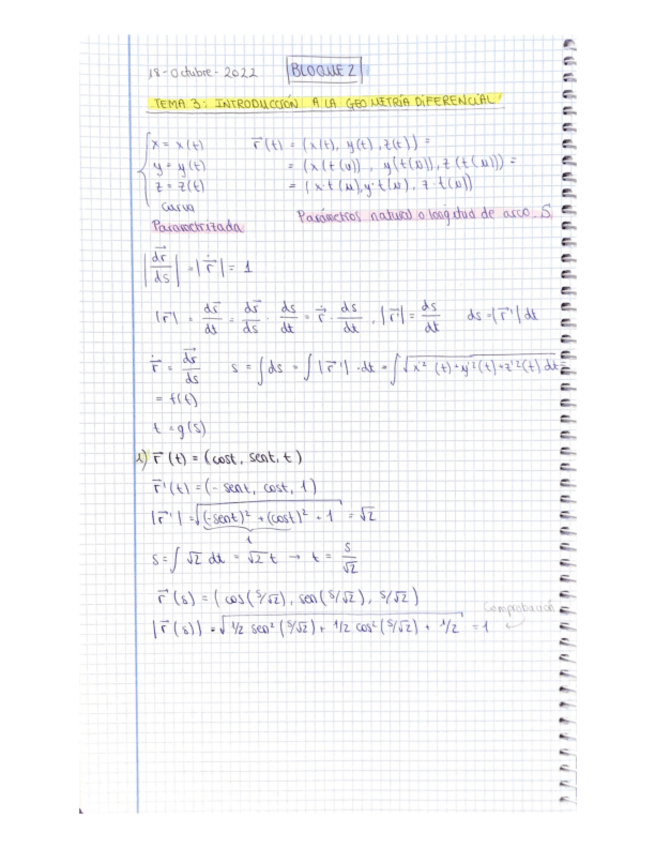 18-Octubre-2022 BLOQUE 2
TEMA 3: INTRODUCCIÓN A LA GEOMETRÍA DIFERENCIAL
x = x(t) r⃗(t) = (x(t), y(t), z(t)) =
y = y(t) = (x(t(u)), y(t(u)), z(t(u))) =
z = z(t) = (x·t(u), y·t(u), z·t(u))
Curva
Parametrizada Parámetros natural o longitud de arco. S
|dr⃗/ds| = |ṙ⃗| = 1
|r⃗| = dr⃗/dt = dr⃗/ds · ds/dt = ṙ⃗ · ds/dt, |r⃗'| = ds/dt ds = |r⃗'| dt
ṙ⃗ = dr⃗/ds s = ∫ ds = ∫ |r⃗'| · dt = ∫ √x² (t) + y'²(t) + z'²(t) dt =
= f(t)
t = g(s)
1) r⃗(t) = (cost, sent, t)
r⃗'(t) = (- sent, cost, 1)
|r⃗'| = √(-sent)² + (cost)² + 1 = √2
1
s = ∫ √2 dt = √2 t → t = s/√2
r⃗(s) = (cos(s/√2), sen(s/√2), s/√2)
Comprobación
|ṙ⃗(s)| = √1/2 sen² (s/√2) + 1/2 cos² (s/√2) + 1/2 = 1 ✓